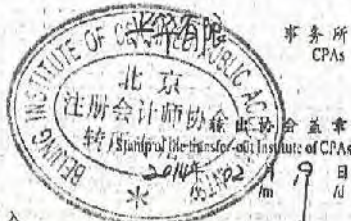 事 务 所
CPAs
BEIJING INSTITUTE OF CERTIFIED PUBLIC AC
北京
注册会计师协会
转所专用
转出协会盖章
Stamp of the transfer-out Institute of CPAs
2014年 02 月 19 日
/m /d
入